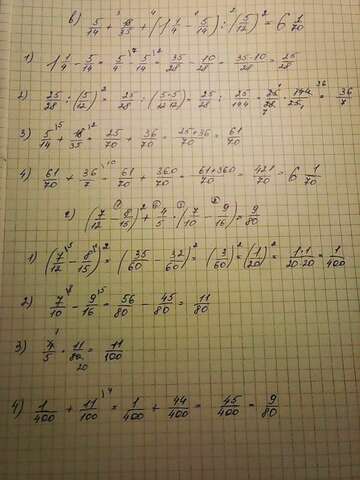 в) 5/14 + 18/35 + (1 1/4 - 5/14) : (5/12)² = 6 1/70
1) 1 1/4 - 5/14 = 5/4 - 5/14 = 35/28 - 10/28 = 35-10/28 = 25/28
2) 25/28 : (5/12)² = 25/28 : (5·5/12·12) = 25/28 : 25/144 = 25·144/28·25 = 36/7
3) 5/14 + 18/35 = 25/70 + 36/70 = 25+36/70 = 61/70
4) 61/70 + 36/7 = 61/70 + 360/70 = 61+360/70 = 421/70 = 6 1/70
г) (7/12 - 8/15)² + 4/5 · (7/10 - 9/16) = 9/80
1) (7/12 - 8/15)² = (35/60 - 32/60)² = (3/60)² = (1/20)² = 1·1/20·20 = 1/400
2) 7/10 - 9/16 = 56/80 - 45/80 = 11/80
3) 4/5 · 11/80 = 11/100
4) 1/400 + 11/100 = 1/400 + 44/400 = 45/400 = 9/80